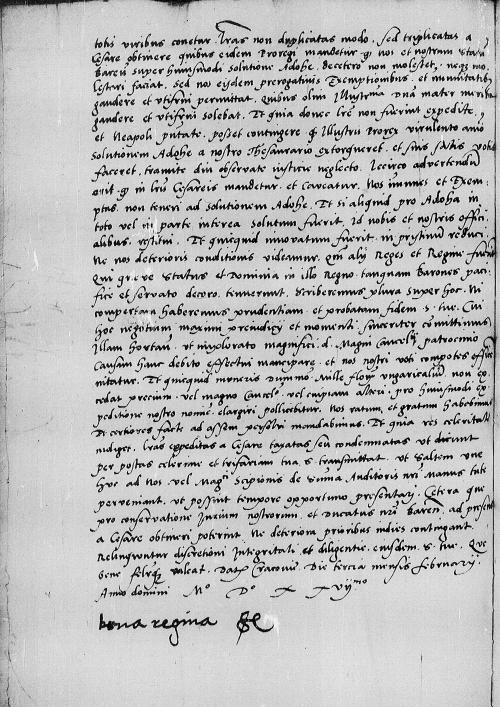 totis viribus conetur. Lras non duplicatas modo, sed triplicatas a
Cesare obtinere quibus eidem Proregi mandetur q nos et nostrum Statu
Baren super huiusmodi solutione Adohe. decetero non molestet, neque mo
lestari faciat. sed nos eisdem prerogativis Exemptionibus et immunitatib
gaudere et utifrui permittat. quibus olim Illustrma Dna mater nra
gaudere et utifrui solebat. Et quia donec lre non fuerint expedite
et Neapoli putate, posset contingere q Illustris Prorex virulento animo
solutionem Adohe a nostro Thesaurario extorqueret, et suis votis
faceret, tramite diu observato iustitie neglecto. Iccirco advertendum
erit q in lris Cesareis mandetur et caveatur. Nos immunes et Exem
ptas. non teneri ad solutionem Adohe. Et si aliquid pro Adoha in
toto vel in parte interea solutum fuerit, id nobis et nostris offici
alibus restitui. Et quicquid innovatum fuerit in pristinum reduci.
Ne nos deterioris conditionis videamur, quam alii Reges et Regine fuerunt
Qui Status et Dominia in illo Regno tanquam Barones paci
fice et servato decoro tenuerunt. Scriberemus plura super hoc. Ni
compertam haberemus prudentiam et probatam fidem s. tue. Cui
hoc negotium maximi preiudicii et momenti sinceriter committimus
Illam hortamur ut implorato magnifici d. Magni Cancellarii patrocinio
Causam hanc debito effectui mancipare et nos nostri voti compotes efficere
nitatur. Et quicquid muneris Dummodo Mille florenorum ungaricalium non ex
cedat precium vel magno Cancelo vel cuipiam alteri pro huiusmodi ex
peditione nostro nomine elargiri pollicebitur. Nos ratum et gratum habebimus
Et certiores facte ad assem persolvi mandabimus. Et quia res celeritate
indiget. lras expeditas a Cesare taxatas seu condemnatas ut dicunt
per postas celerrime et trifariam tua s. transmittat. ut saltem une
hoc ad nos vel Magci Scipionis de Summa Auditoris nri manus tute
perveniant. ut possint tempore opportuno presentari. Cetera que
pro conservatione Iurium nostrorum et Ducatus nri Baren. ad presens
a Cesare obtineri poterint Ne deteriora prioribus indies contingant.
Relinquuntur discretioni Integritati et diligentie eiusdem s. tue. Que
bene feliciter valeat. Dat Cracovie Die tercia mensis februarii
Anno domini Mo Do XXVIImo
bona regina